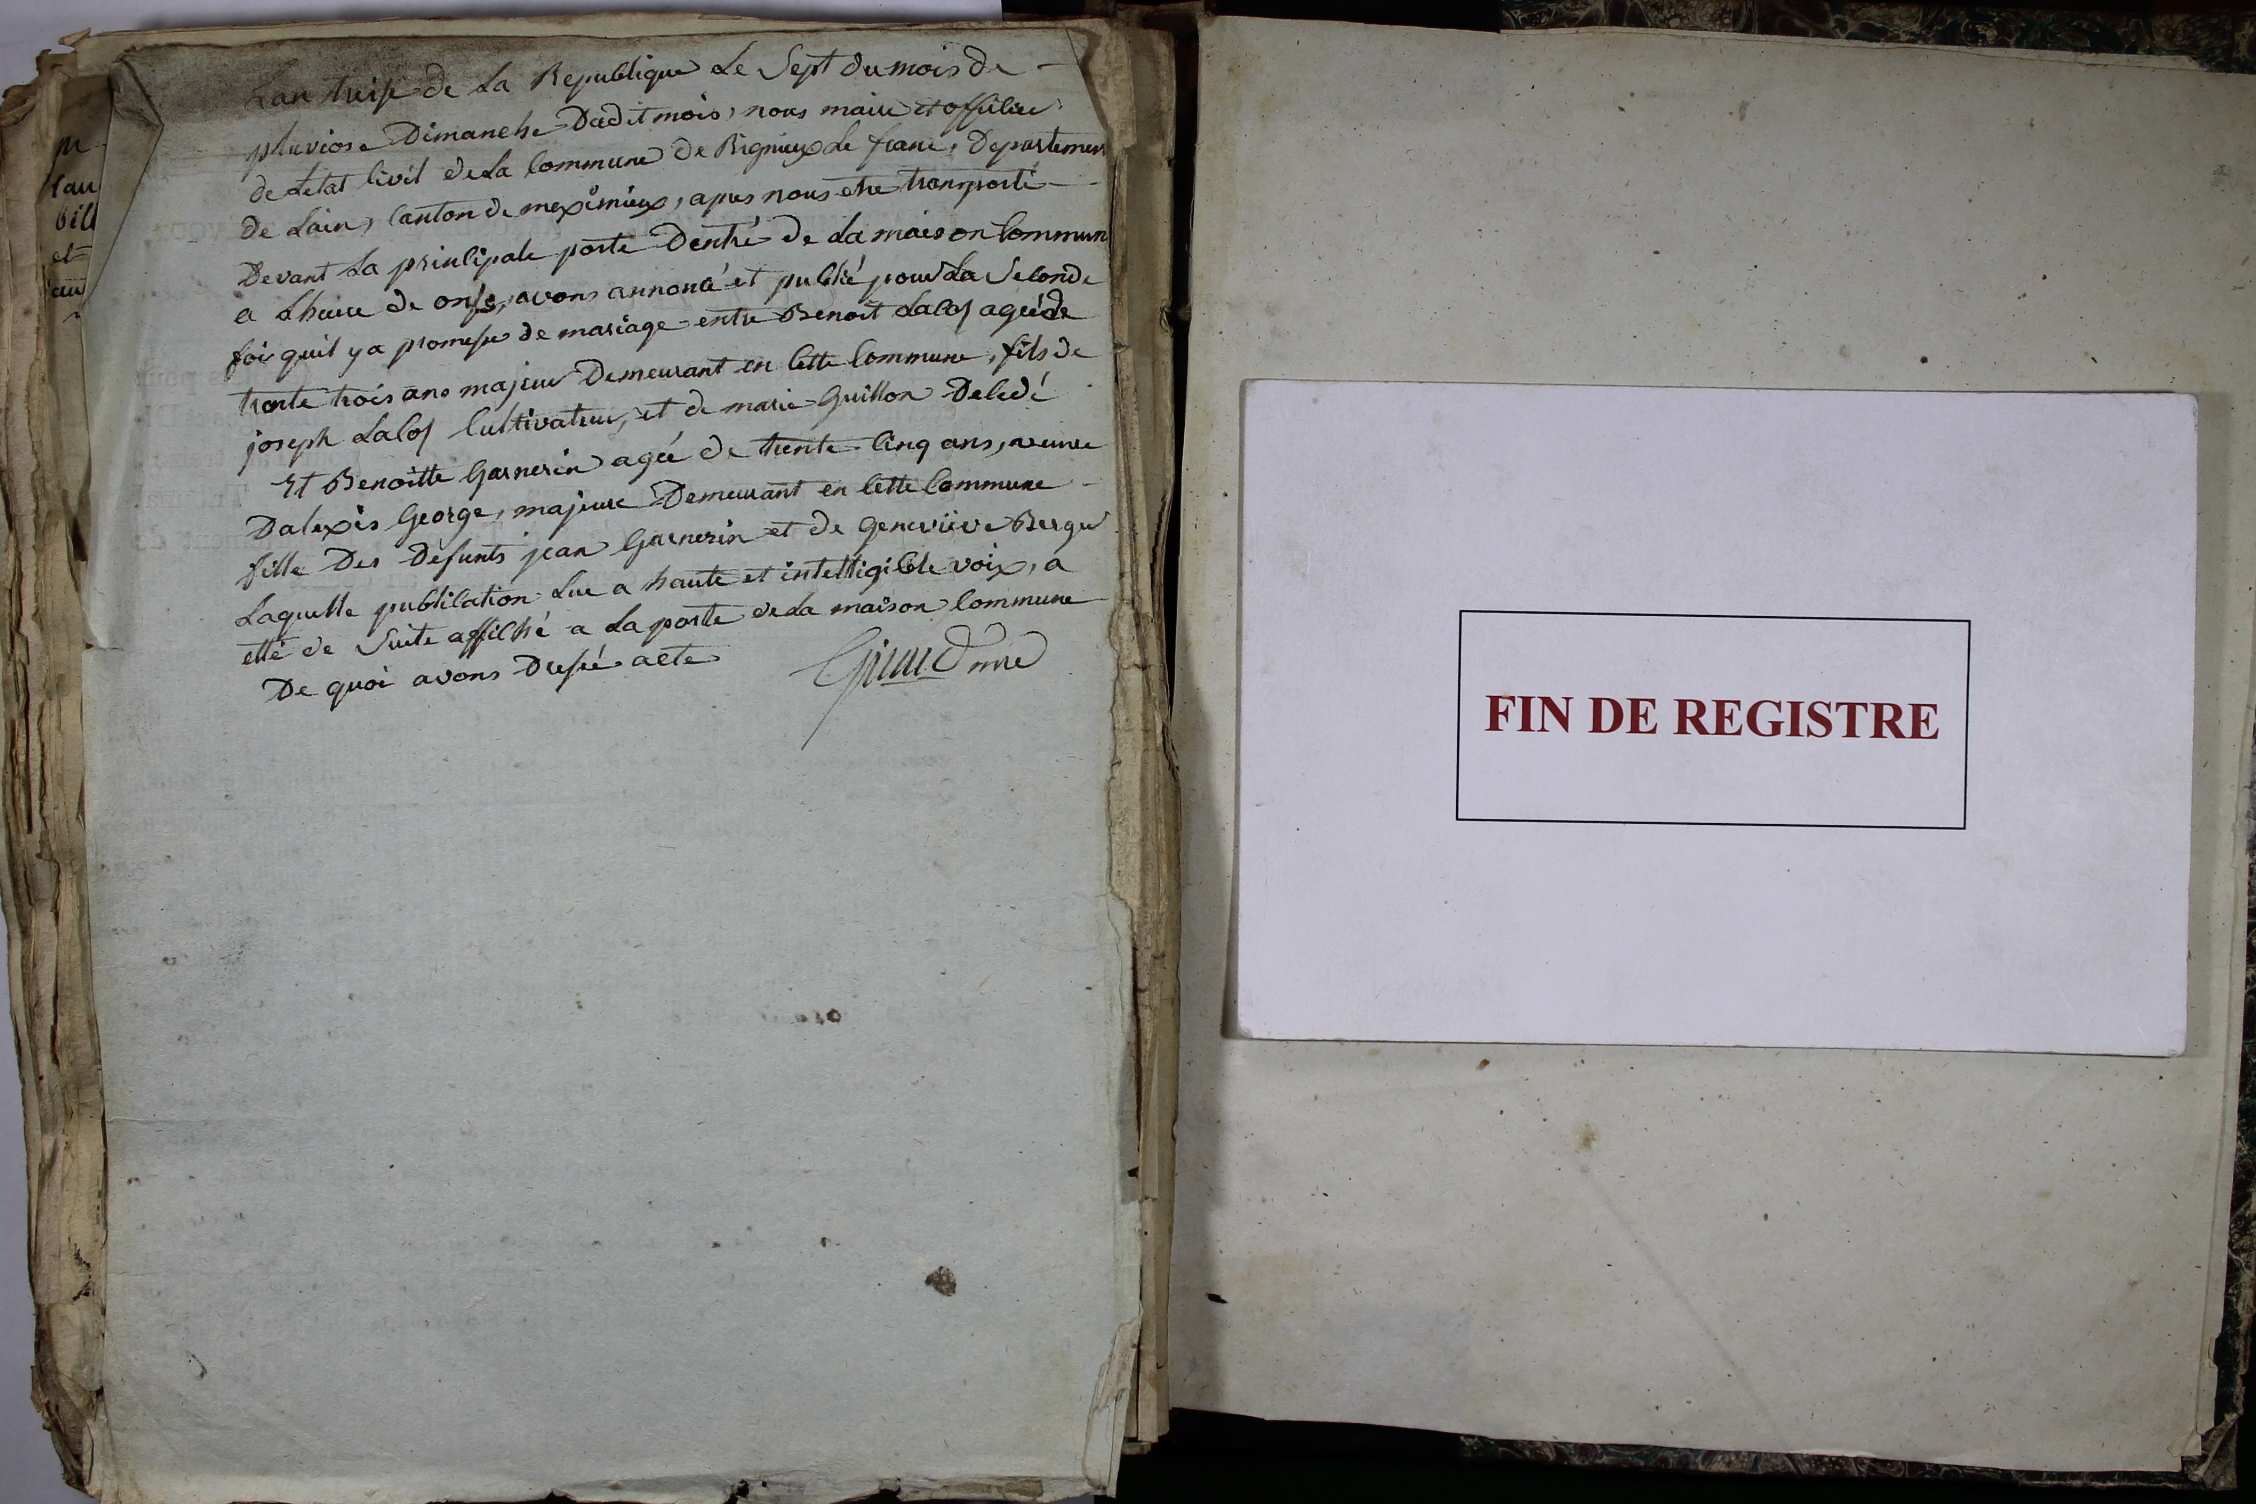 Lan treise de La Republique Le Sept du mois de
pluviose Dimanche Dudit mois, nous maire et officier
de Letat Civil de La Commune de Rignieux Le franc, Departement
de Lain, Canton de meximieux, apres nous etre transporté
Devant La principale porte Dentré de La maison Commun
a Lheure de onse, avons annoncé et publié pour La Seconde
fois quil y a promesse de mariage entre Benoit Lacos ageé de
trente trois ans majeur Demeurant en Cette Commune, fils de
joseph Lacos Cultivateur, et de marie Guillon Decedé
Et Benoitte Garnerin ageé de trente Cinq ans, veuve
Dalexis George, majeure Demeurant en Cette Commune
fille Des Defunts jean Garnerin et de geneviéve Berger
Laquelle publication Lue a haute et intelligible voix, a
etté de Suite affiché a La porte de La maison Commune
De quoi avons Dressé acte
FIN DE REGISTRE